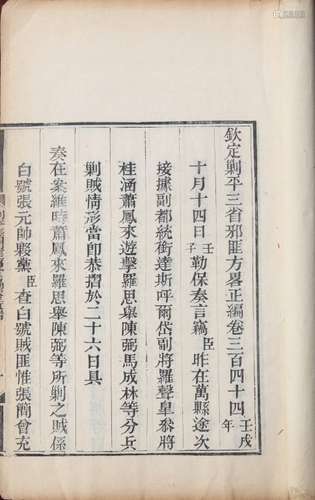 欽定剿平三省邪匪方畧正編卷三百四十四 壬戌年
十月十四日 壬子 勒保奏言竊 臣 昨在萬縣途次
接據副都統銜達斯呼爾岱副將羅聲臯叅將
桂涵蕭鳳來遊擊羅思舉陳弼馬成林等分兵
剿賊情形當卽恭摺於二十六日具
奏在案維時蕭鳳來羅思舉陳弼等所剿之賊係
白號張元帥夥黨 臣 查白號賊匪惟張簡曾充